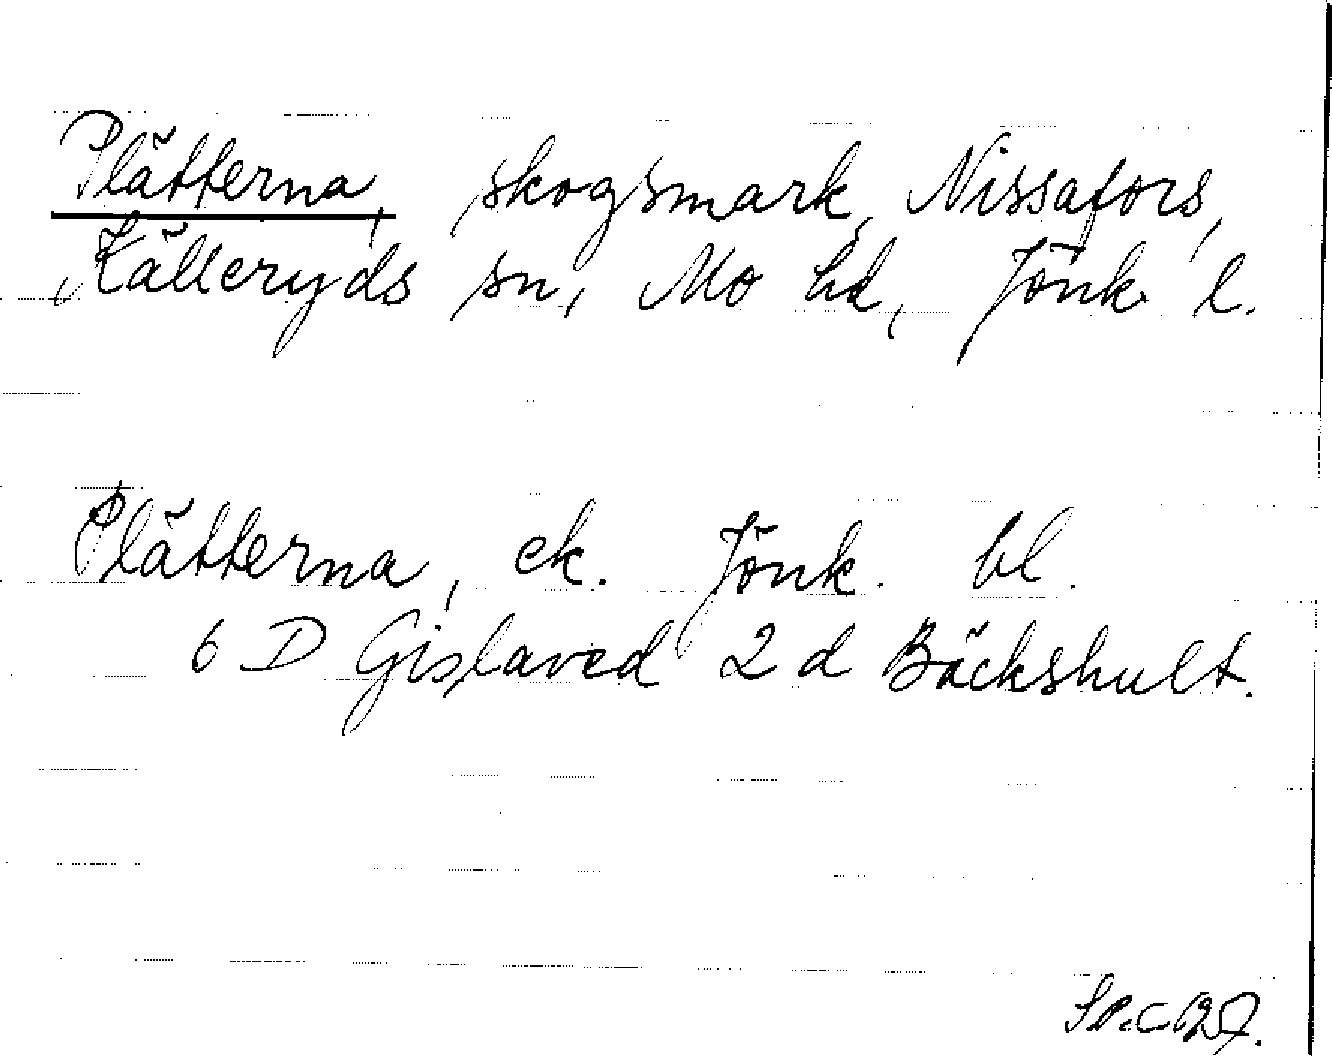 Plätterna, skogsmark, Nissafors,
Källeryds sn, Mo hd, Jönk. l.
Plätterna, ek. Jönk. bl.
6 D Gislaved 2 d Bäckshult.